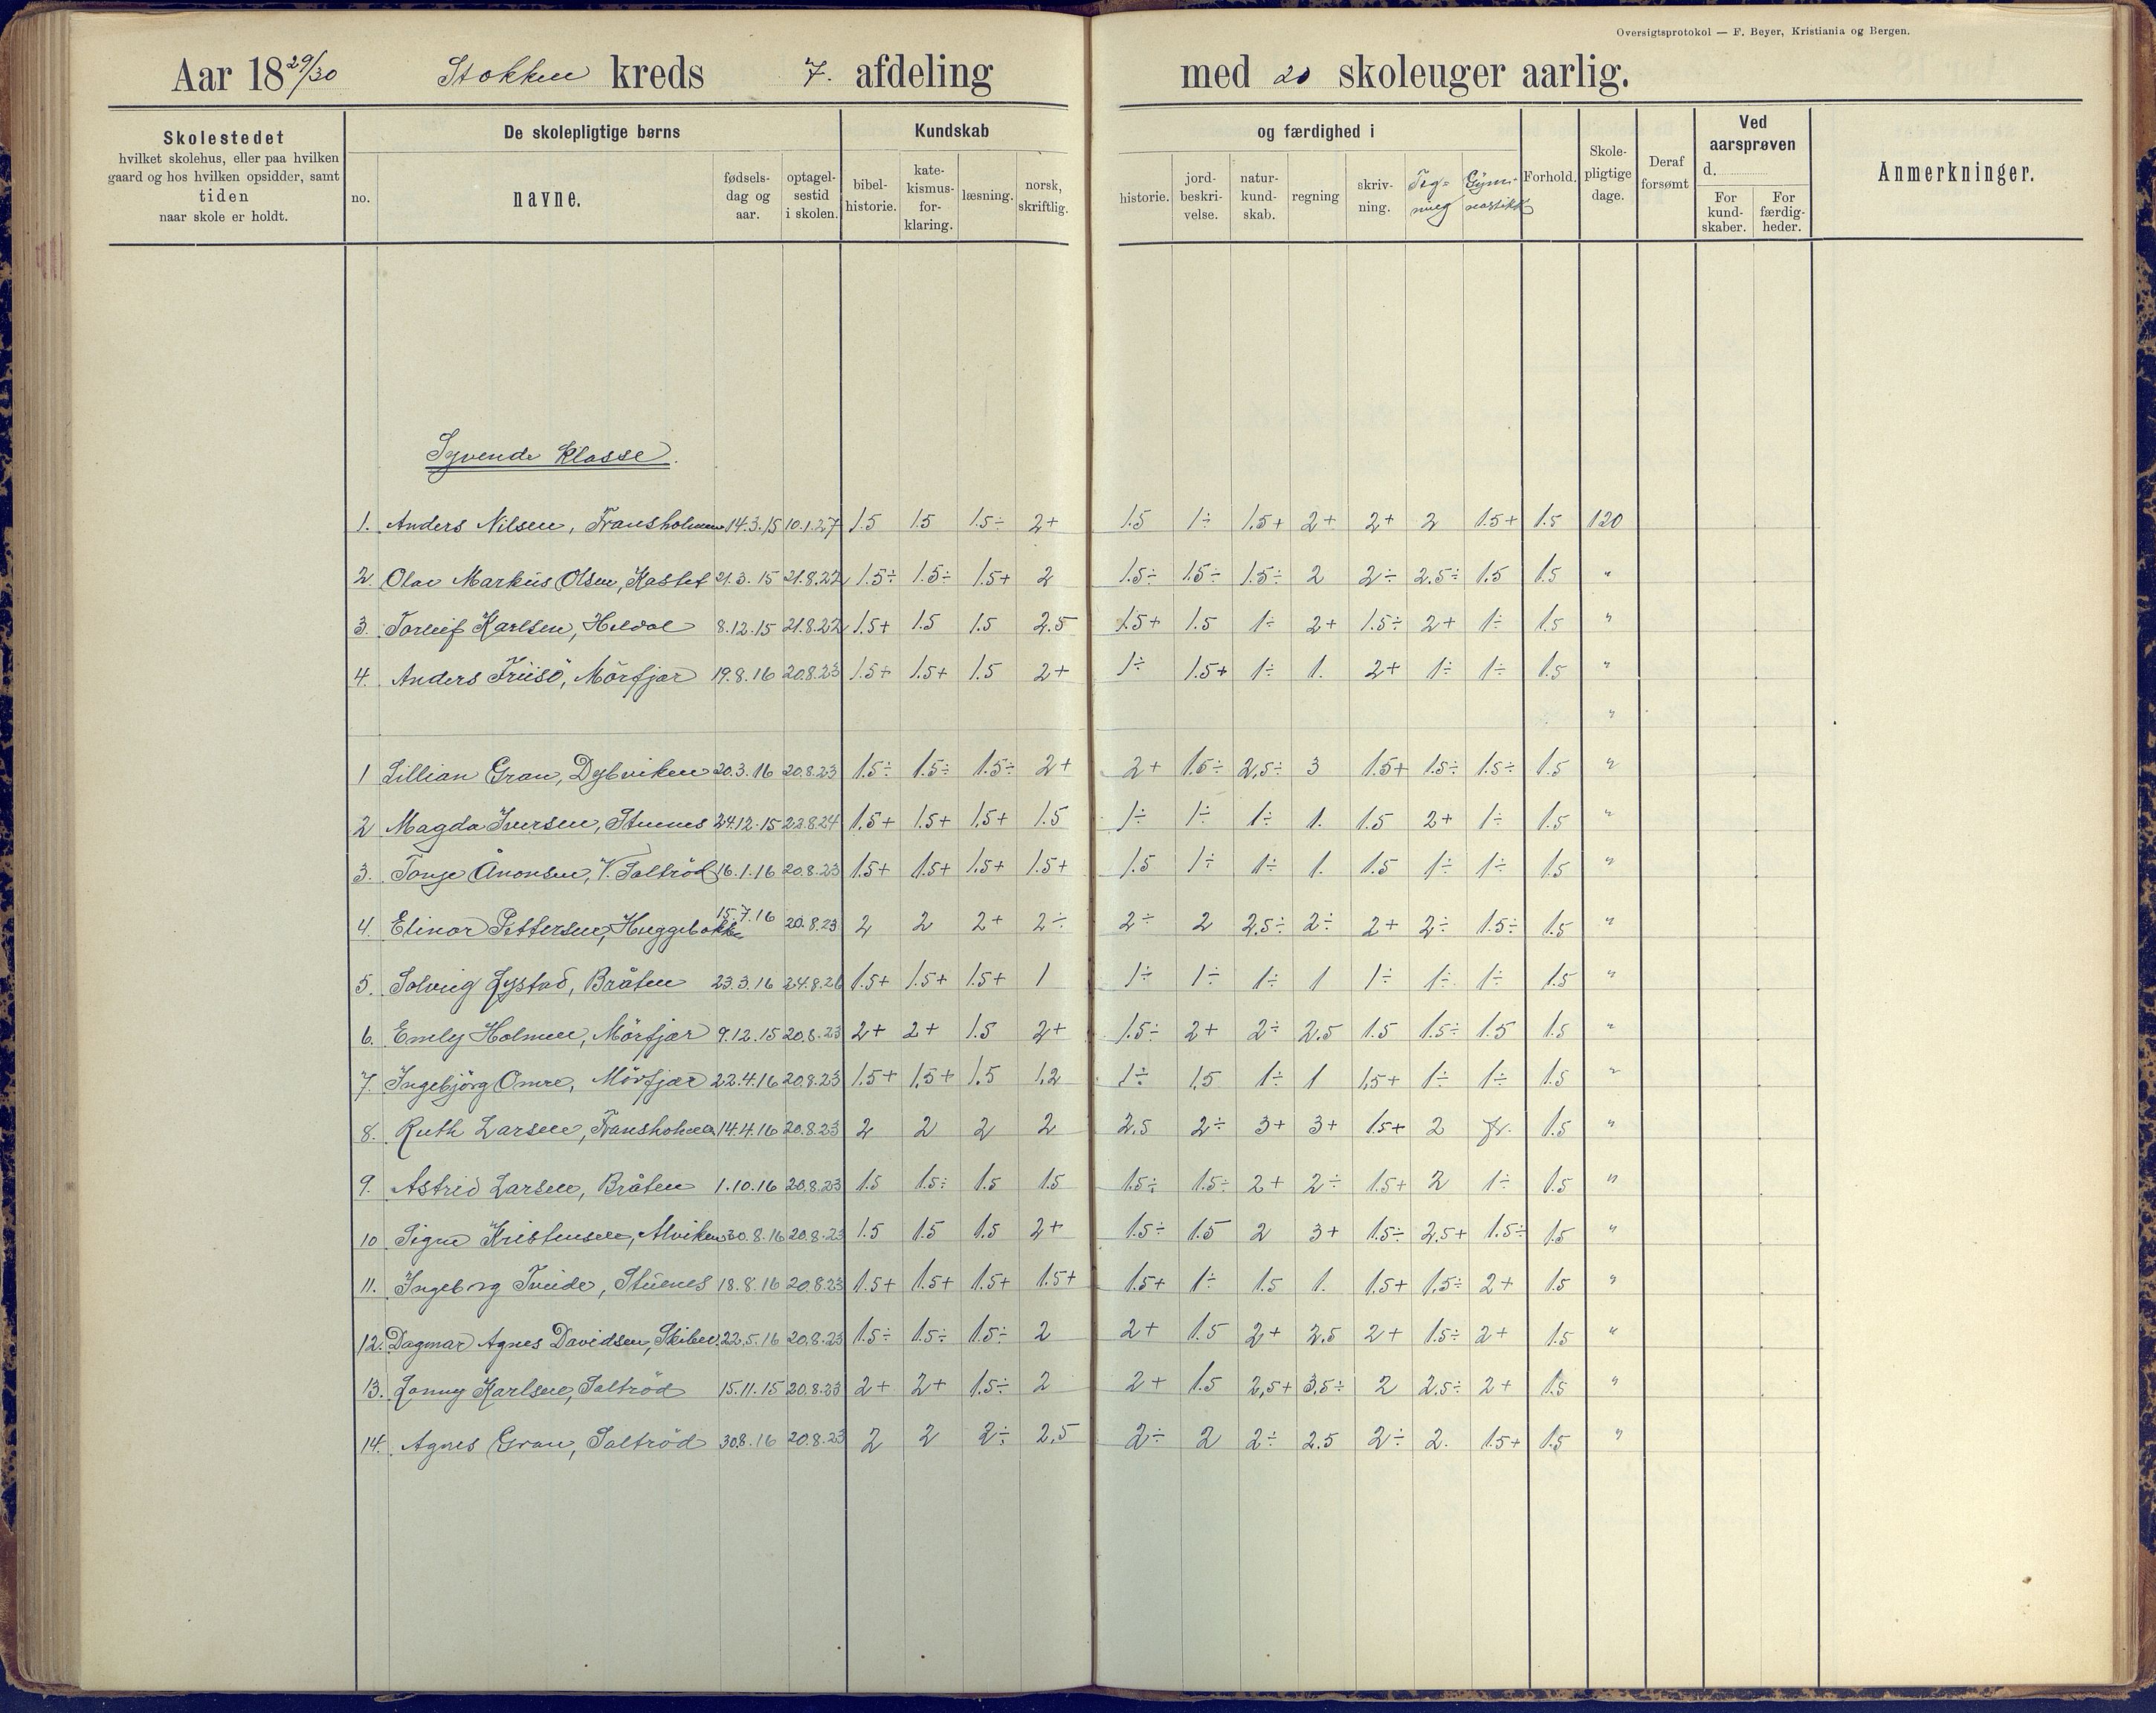 Oversigtsprotokol — F. Beyer, Kristiania og Bergen.
Aar 18 29/30 Stokken kreds 7. afdeling med 20 skoleuger aarlig.
Skolestedet
hvilket skolehus, eller paa hvilken
gaard og hos hvilken opsidder, samt
tiden
naar skole er holdt.
De skolepligtige børns
no.
navne.
fødsels-
dag og
aar.
optagel-
sestid
i skolen.
Kundskab
bibel-
historie.
kate-
kismus-
for-
klaring.
læsning.
norsk,
skriftlig.
og færdighed i
historie.
jord-
beskri-
velse.
natur-
kund-
skab.
regning
skriv-
ning.
Teg-
ning
Gym-
nastikk
Forhold.
Skole-
pligtige
dage.
Deraf
forsømt
Ved
aarsprøven
d.
For
kund-
skaber.
For
færdig-
heder.
Anmerkninger.
Syvende klasse.
1. Anders Nilsen, Fransholmen 14.3.15 10.1.27 1.5 1.5 1.5÷ 2+ 1.5 1÷ 1.5+ 2+ 2+ 2 1.5+ 1.5 120
2. Olav Markus Olsen, Kastet 21.3.15 21.8.22 1.5÷ 1.5÷ 1.5+ 2 1.5÷ 1.5÷ 1.5÷ 2 2÷ 2.5÷ 1.5 1.5 "
3. Torleif Karlsen, Heldal 8.12.15 21.8.22 1.5+ 1.5 1.5 2.5 1.5+ 1.5 1÷ 2+ 1.5÷ 2+ 1÷ 1.5 "
4. Anders Friisö, Mörfjær 19.8.16 20.8.23 1.5+ 1.5+ 1.5 2+ 1÷ 1.5+ 1÷ 1. 2+ 1÷ 1÷ 1.5 "
"
1 Lillian Gran, Dybviken 20.3.16 20.8.23 1.5÷ 1.5÷ 1.5÷ 2+ 2+ 1.5÷ 2,5÷ 3 1.5+ 1.5÷ 1.5÷ 1.5 "
2 Magda Iversen, Stuenes 24.12.15 22.8.24 1.5+ 1.5+ 1.5+ 1.5 1÷ 1÷ 1÷ 1. 1.5 2+ 1÷ 1.5 "
3. Tonje Ånonsen, V. Saltröd 16.1.16 20.8.23 1.5+ 1.5+ 1.5+ 1.5+ 1.5 1÷ 1÷ 1. 1.5 1÷ 1÷ 1.5 "
4. Elinor Pettersen, Huggebakke 15.7.16 20.8.23 2 2 2+ 2÷ 2÷ 2 2.5÷ 2÷ 2+ 2÷ 1.5÷ 1.5 "
5. Solveig Lystad, Bråten 23.3.16 24.8.26 1.5+ 1.5+ 1.5+ 1 1÷ 1÷ 1÷ 1 1÷ 1÷ 1÷ 1.5 "
6. Emely Holmen, Mörfjær 9.12.15 20.8.23 2+ 2+ 1.5 2+ 1.5÷ 2+ 2÷ 2.5 1.5 1.5÷ 1.5 1.5 "
7. Ingebjörg Omre, Mörfjær 22.4.16 20.8.23 1.5+ 1,5+ 1.5 1,2 1÷ 1,5 1÷ 1 1,5+ 1÷ 1÷ 1.5 "
8. Ruth Larsen, Fransholmen 14.4.16 20.8.23 2 2 2 2 2.5 2÷ 3+ 3+ 1.5+ 2 fr. 1.5 "
9. Astrid Larsen, Bråten 1.10.16 20.8.23 1.5 1.5÷ 1.5 1.5 1.5÷ 1.5÷ 2+ 2÷ 1.5+ 2 1÷ 1.5 "
10 Signe Kristensen, Alviken 30.8.16 20.8.23 1.5 1.5 1.5 2+ 1.5÷ 1.5 2 3+ 1.5÷ 2.5+ 1.5÷ 1.5 "
11. Ingeborg Tveide, Stuenes 18.8.16 20.8.23 1.5+ 1.5+ 1.5+ 1.5+ 1.5+ 1÷ 1.5 1. 1.5+ 1.5÷ 2+ 1.5 "
12. Dagmar Agnes Davidsen, 22.5.16 20.8.23 1.5÷ 1.5÷ 1.5÷ 2 2+ 1.5 2+ 2.5 2+ 1.5÷ 2+ 1.5 "
13. Karlsen, Saltröd 15.11.15 20.8.23 2+ 2+ 1.5÷ 2 2+ 1.5 2,5+ 3.5÷ 2 2.5÷ 2+ 1.5 "
14. Agnes Gran, Saltröd 30.8.16 20.8.23 2 2 2÷ 2.5 2÷ 2 2÷ 2.5 2÷ 2. 1.5+ 1.5 "